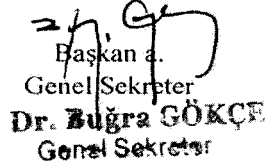 Başkan a.
Genel Sekreter
Dr. Buğra GÖKÇE
Genel Sekreter